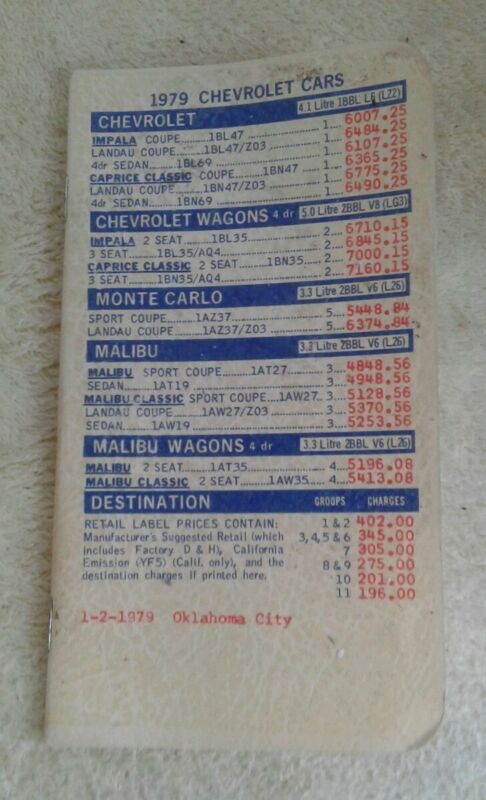 1979 CHEVROLET CARS
CHEVROLET 4.1 Litre 1BBL L6 (L22)
IMPALA COUPE.....1BL47.................1...6007.25
LANDAU COUPE.....1BL47/Z03...........1...6484.25
4dr SEDAN.........1BL69.................1...6107.25
CAPRICE CLASSIC COUPE.....1BN47........1...6365.25
LANDAU COUPE.....1BN47/Z03...........1...6775.25
4dr SEDAN.........1BN69.................1...6490.25
CHEVROLET WAGONS 4 dr 5.0 Litre 2BBL V8 (LG3)
IMPALA 2 SEAT.......1BL35................2...6710.15
3 SEAT.............1BL35/AQ4.............2...6845.15
CAPRICE CLASSIC 2 SEAT........1BN35.....2...7000.15
3 SEAT.............1BN35/AQ4.............2...7160.15
MONTE CARLO 3.3 Litre 2BBL V6 (L26)
SPORT COUPE.......1AZ37.................5...5448.84
LANDAU COUPE.....1AZ37/Z03............5...6374.84
MALIBU 3.3 Litre 2BBL V6 (L26)
MALIBU SPORT COUPE.......1AT27........3...4848.56
SEDAN.......1AT19......................3...4948.56
MALIBU CLASSIC SPORT COUPE....1AW27..3...5128.56
LANDAU COUPE.......1AW27/Z03..........3...5370.56
SEDAN.......1AW19......................3...5253.56
MALIBU WAGONS 4 dr 3.3 Litre 2BBL V6 (L26)
MALIBU 2 SEAT.......1AT35..............4...5196.08
MALIBU CLASSIC 2 SEAT.......1AW35.....4...5413.08
DESTINATION GROUPS CHARGES
RETAIL LABEL PRICES CONTAIN: 1 & 2 402.00
Manufacturer's Suggested Retail (which 3, 4, 5 & 6 345.00
includes Factory D & H), California 7 305.00
Emission (YF5) (Calif. only), and the 8 & 9 275.00
destination charges if printed here. 10 201.00
11 196.00
1-2-1979 Oklahoma City